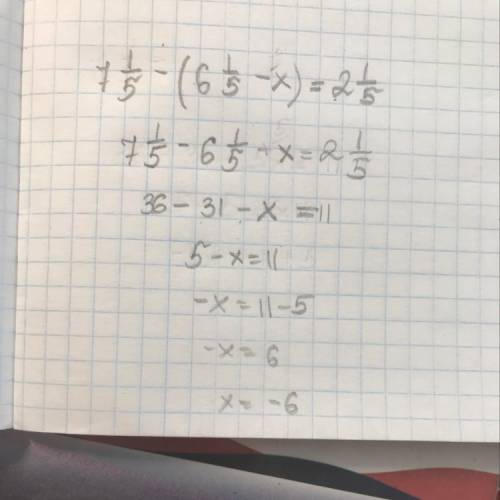 7 1/5 - (6 1/5 - x) = 2 1/5
7 1/5 - 6 1/5 - x = 2 1/5
36 - 31 - x = 11
5 - x = 11
-x = 11 - 5
-x = 6
x = -6